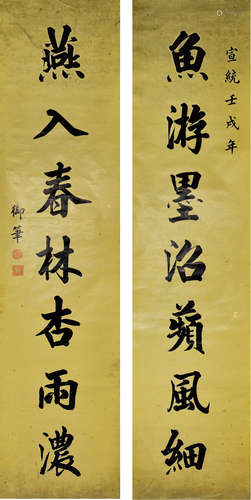 宣統壬戌年
魚游墨沼蘋風細
燕入春林杏雨濃
御筆